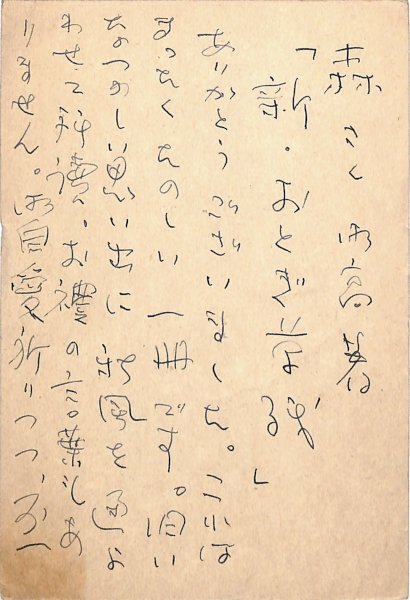 森さん御高著
「新・おとぎ草残」
ありがとうございました。これは
まったくたのしい一冊です。旧い
なつかしい思い出に新風を通よ
わせて拝讀、お禮の言葉しあ
りません。御自愛祈りつつ、